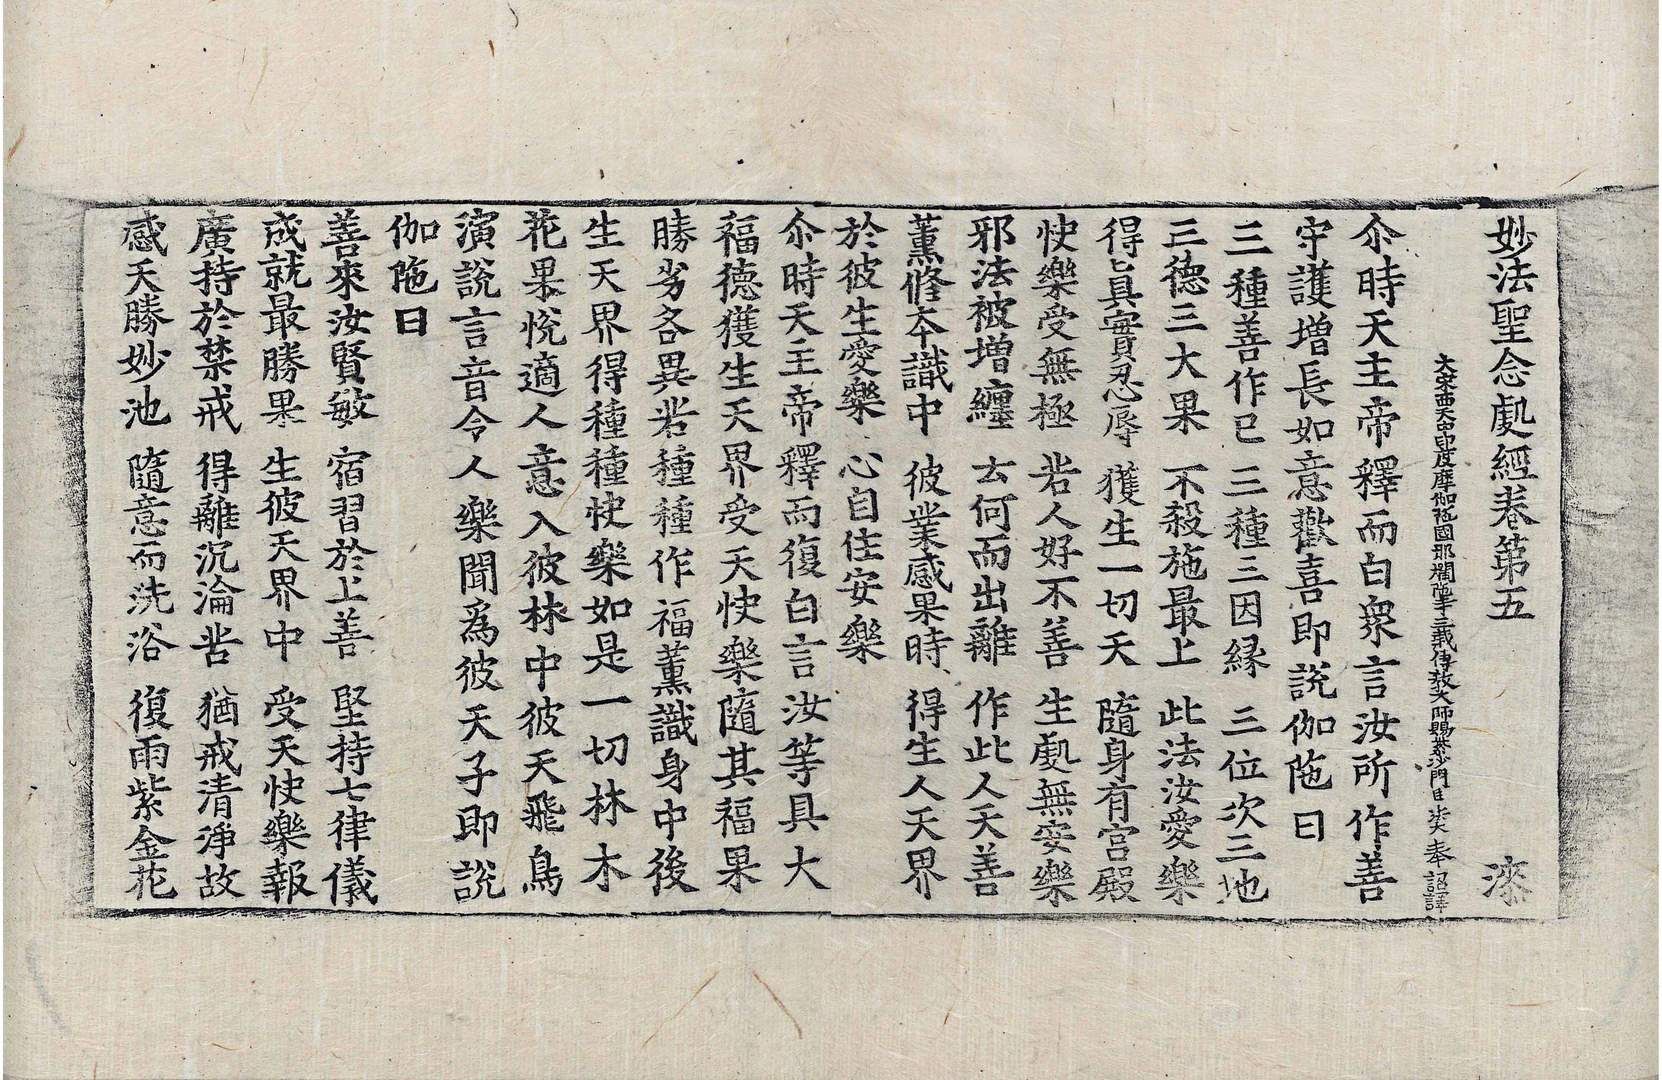 妙法聖念處經卷第五 漆
大宋西天中印度摩伽陁國那爛陁寺三藏傳教大師賜紫沙門臣法天奉 詔譯
尒時天主帝釋而白衆言汝所作善
守護增長如意歡喜即說伽陁曰
三種善作已 三種三因緣 三位次三地
三德三大果 不殺施最上 此法汝愛樂
得眞實忍辱 獲生一切天 隨身有宮殿
快樂受無極 若人好不善 生處無安樂
邪法被增纏 去何而出離 作此人天善
薰修夲識中 彼業感果時 得生人天界
於彼生愛樂 心自住安樂
尒時天主帝釋而復白言汝等具大
福德獲生天界受天快樂隨其福果
勝劣各異若種種作福薰識身中後
生天界得種種快樂如是一切林木
花果悅適人意入彼林中彼天飛鳥
演說言音令人樂聞爲彼天子即說
伽陁曰
善來汝賢敏 宿習於上善 堅持七律儀
成就最勝果 生彼天界中 受天快樂報
廣持於禁戒 得離沉淪苦 猶戒清淨故
感天勝妙池 隨意而洗浴 復雨紫金花